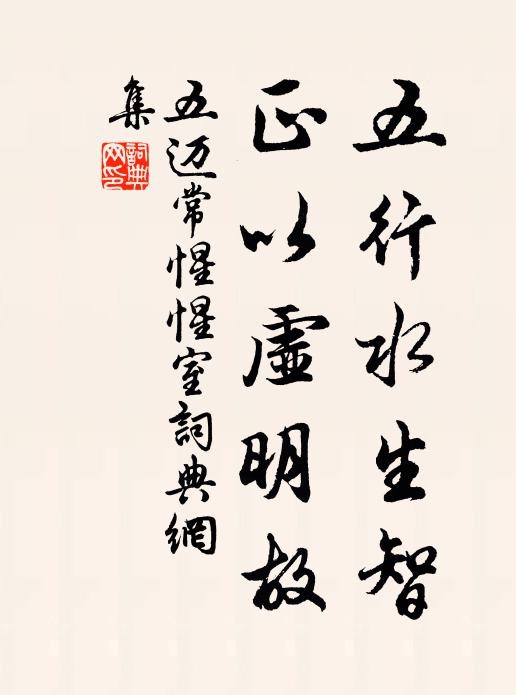 五行水生智
正以虛明故
五迈常惺惺室詞典網
集
詞典
网印